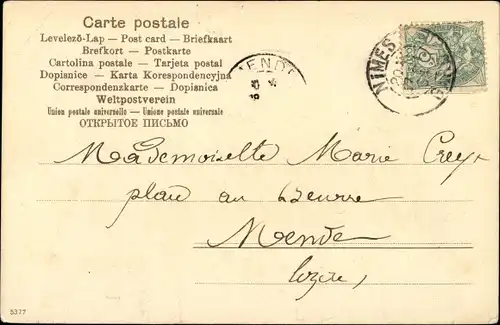 Carte postale
Levelezö-Lap — Post card — Briefkaart
Brefkort — Postkarte
Cartolina postale — Tarjeta postal
Dopisnice — Karta Korespondencyjna
Correspondenzkarte — Dopisnica
Weltpostverein
Union postale universelle — Unione postale universale
ОТКРЫТОЕ ПИСЬМО
MENDE
NIMES
Mademoiselle Marie
plan au beurre
Mende
Lozère
5377